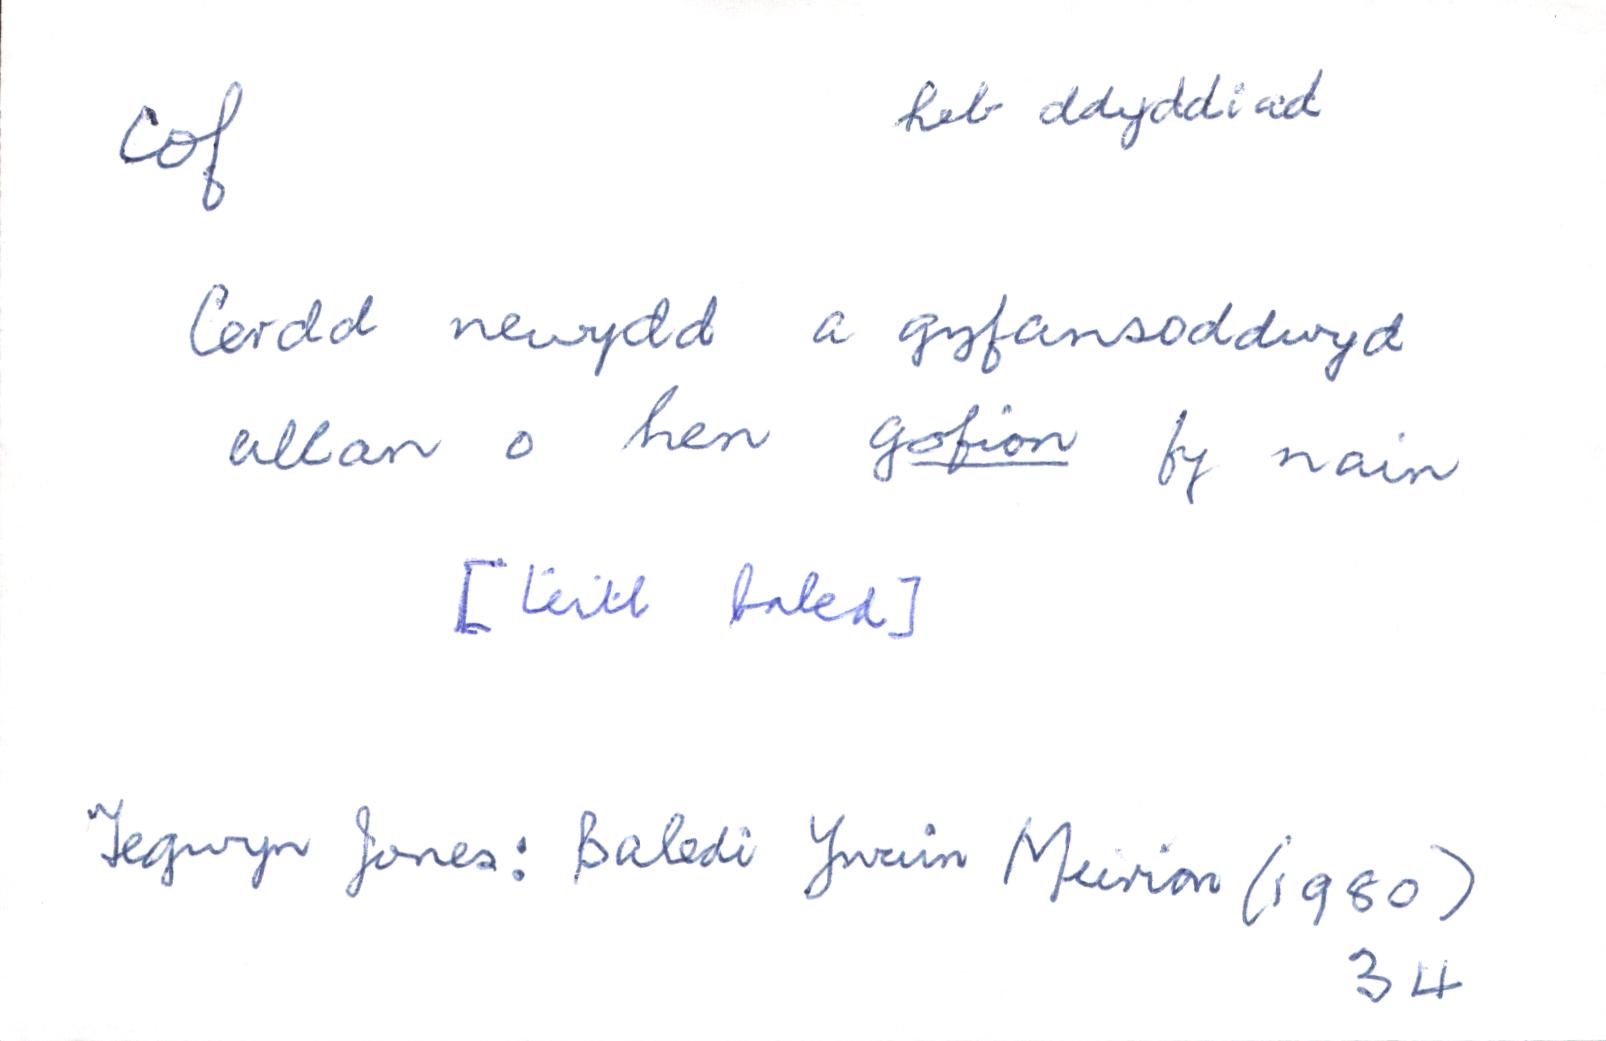 cof
heb ddyddiad
Cerdd newydd a gyfansoddwyd
allan o hen gofion fy nain
[teitl baled]
Tegwyn Jones: Baledi Ywain Meirion (1980)
34